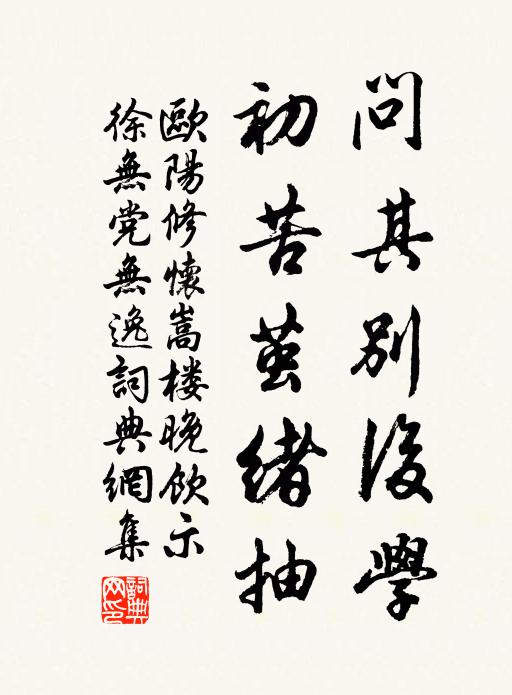 問其別後學
初苦茧緒抽
歐陽修懷嵩樓晚飲示
徐無党無逸詞典網集
詞典网印